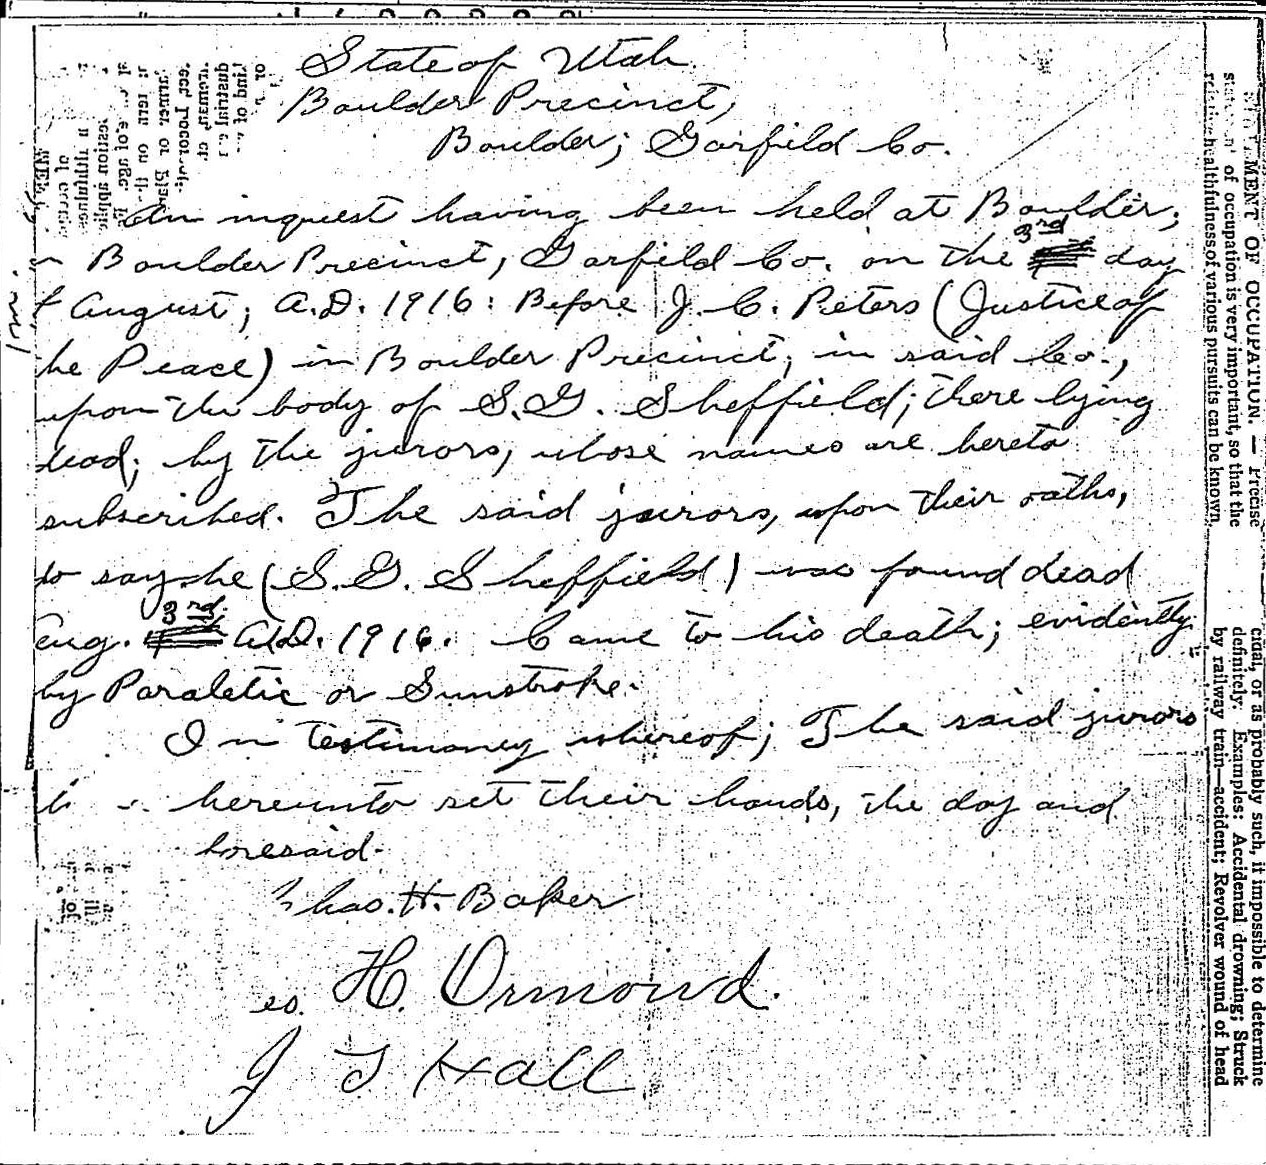 State of Utah
Boulder Precinct,
Boulder; Garfield Co.
An inquest having been held at Boulder;
Boulder Precinct, Garfield Co. on the 3rd day
August; A.D. 1916: Before J. C. Peters (Justice of
he Peace) in Boulder Precinct, in said Co.,
upon the body of S. G. Sheffield; there lying
dead; by the jurors, whose names are hereto
subscribed. The said jourors, upon their oaths,
do say he (S. G. Sheffield) was found dead
Aug. 3rd. A.D. 1916. Came to his death; evidently
by Paraletic or Sunstroke.
In testimoney whereof; The said jurors
hereunto set their hands, the day and
foresaid.
Chas. H. Baker
eo. H. Ormond.
J T Hall
MENT OF OCCUPATION. — Precise
of occupation is very important, so that the
relative healthfulness of various pursuits can be known.
cidal, or as probably such, if impossible to determine
definitely. Examples: Accidental drowning; Struck
by railway train—accident; Revolver wound of head